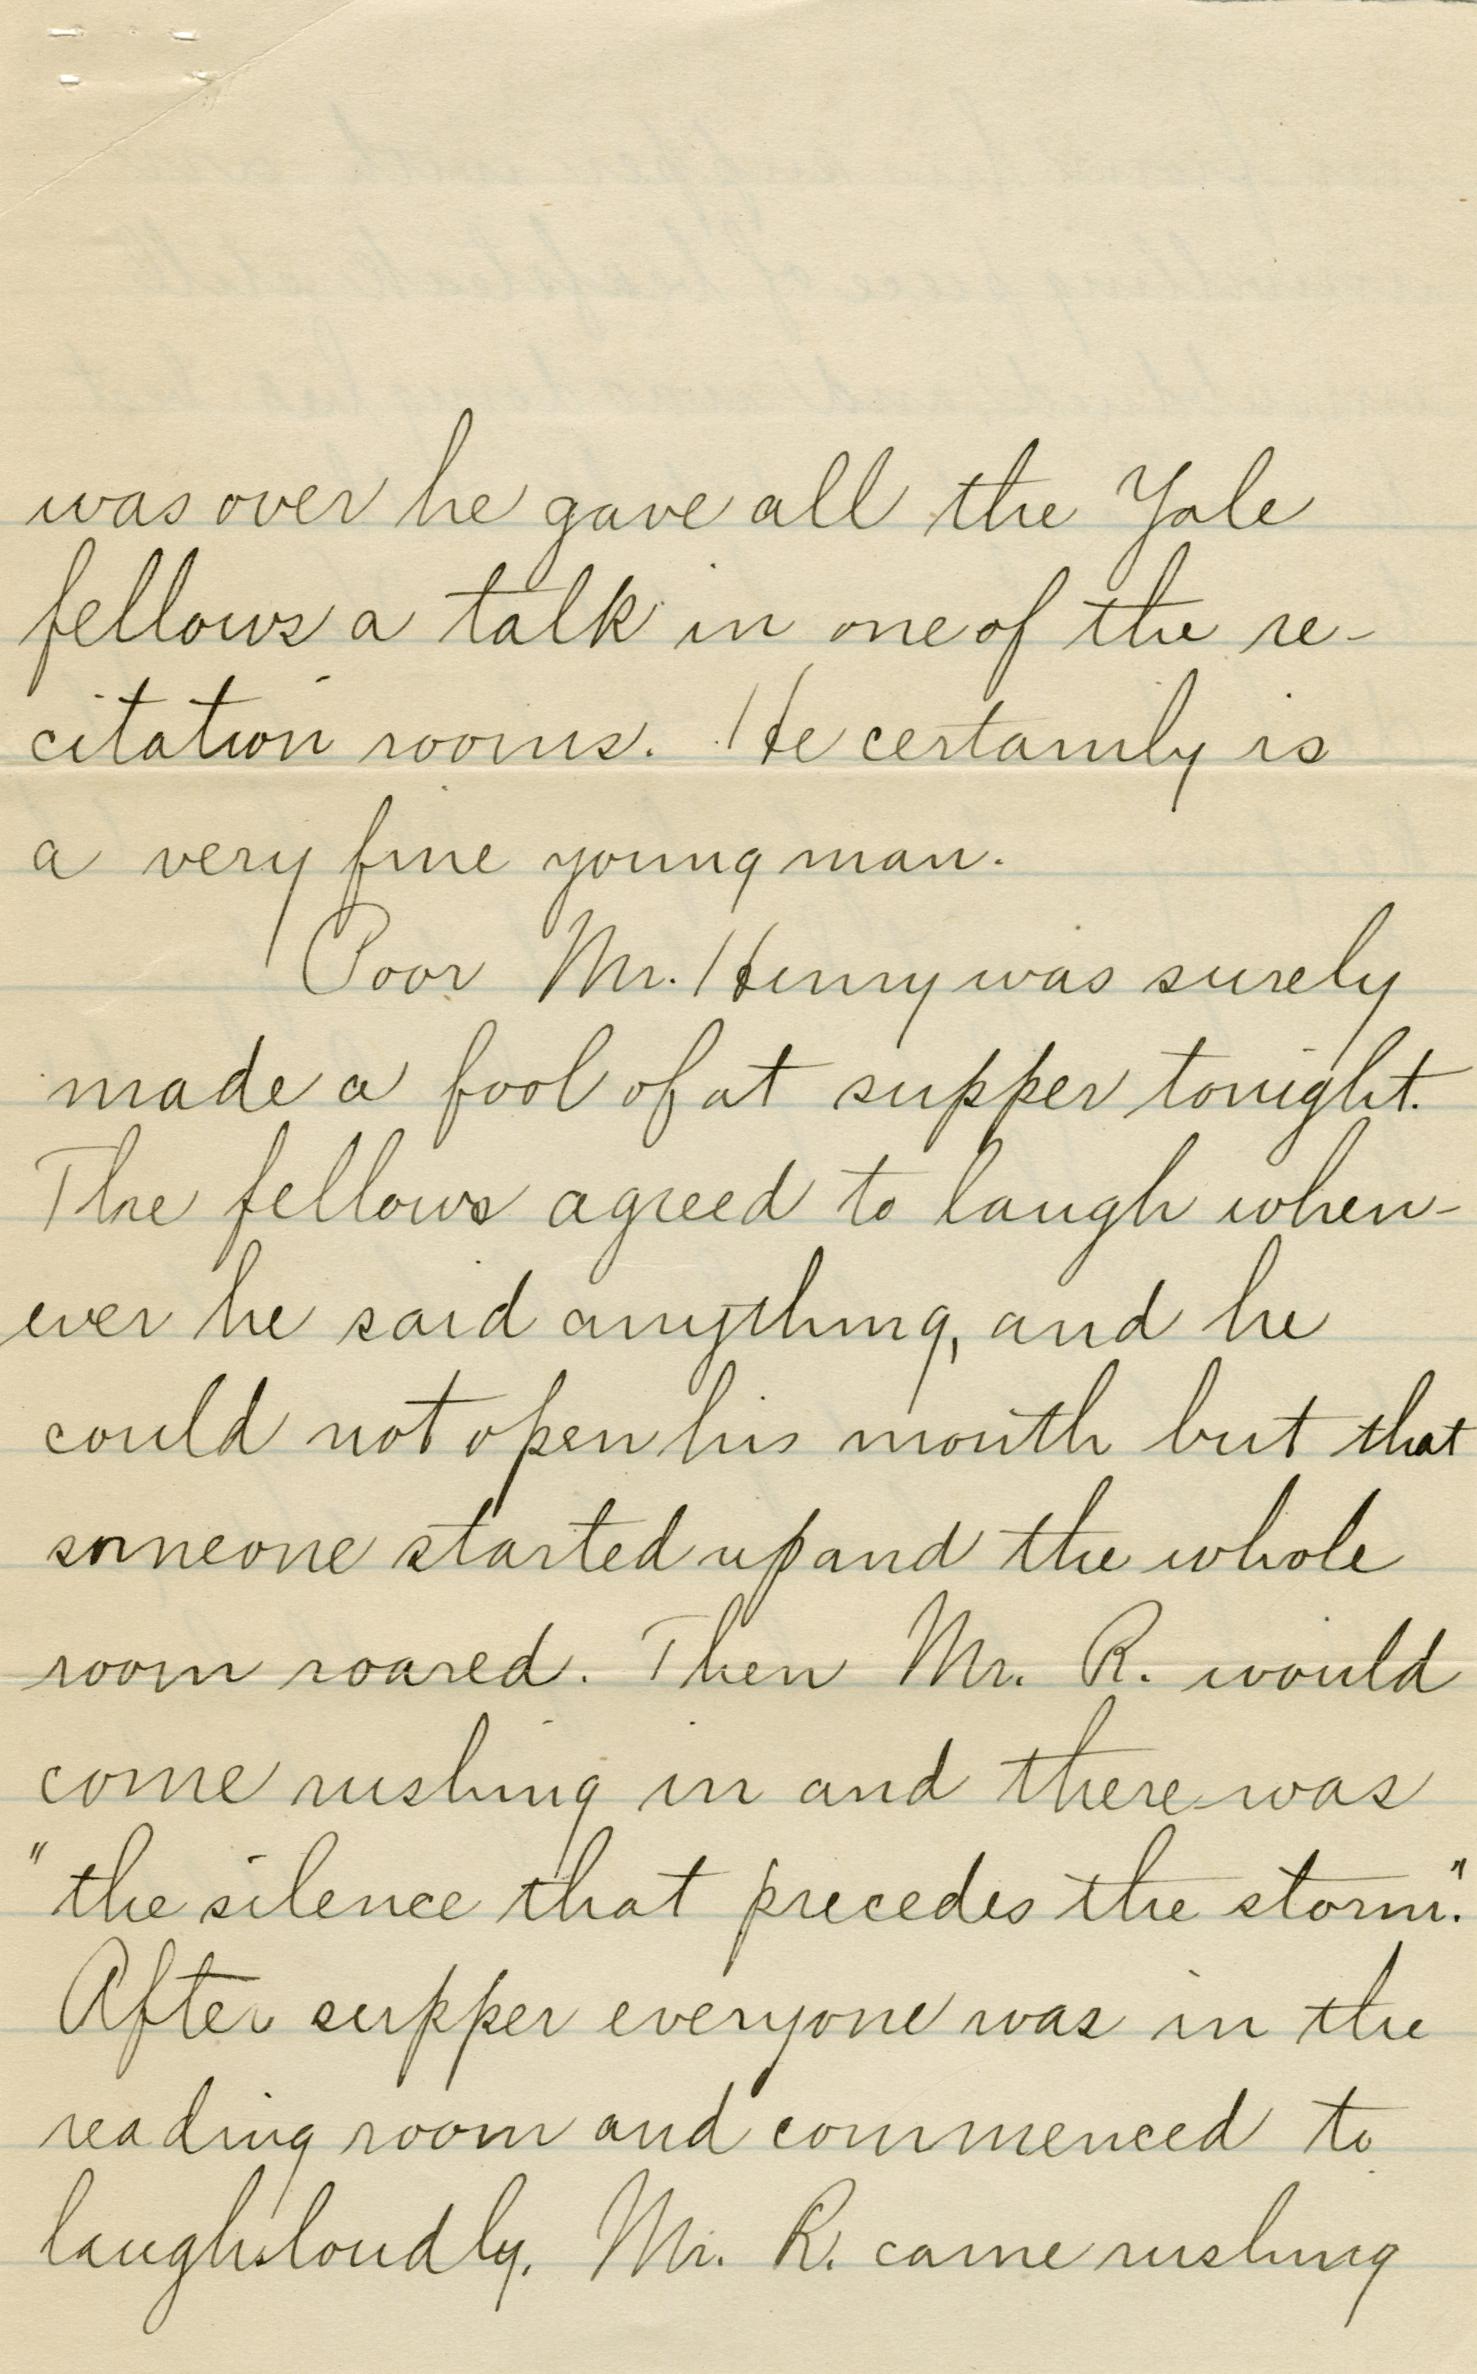 was over he gave all the Yale
fellows a talk in one of the re-
citation rooms. He certainly is
a very fine young man.
Poor Mr. Henry was surely
made a fool of at supper tonight.
The fellows agreed to laugh when-
ever he said anything, and he
could not open his mouth but that
someone started up and the whole
room roared. Then Mr. R. would
come rushing in and there was
"the silence that precedes the storm."
After supper everyone was in the
reading room and commenced to
laugh loudly. Mr. R. came rushing